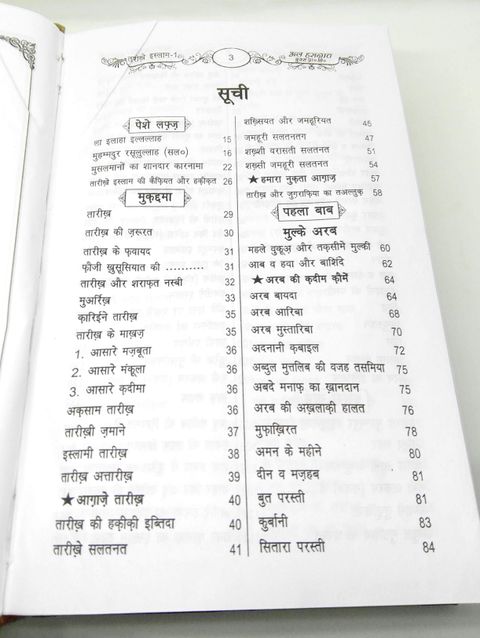 तारीख़े इस्लाम-1
3
अल हसनात
बुक्स प्रा० लि०
सूची
पेशे लफ़्ज़
ला इलाहा इल्लल्लाह 15
मुहम्मदुर रसूलुल्लाह (सल०) 16
मुसलमानों का शानदार कारनामा 22
तारीख़े इस्लाम की कैफ़ियत और हक़ीक़त 26
मुक़द्दमा
तारीख़ 29
तारीख़ की ज़रूरत 30
तारीख़ के फ़वायद 31
फ़ौजी ख़ुसूसियात की .......... 31
तारीख़ और शराफ़त नस्बी 32
मुअर्रिख़ 33
क़ारिईने तारीख़ 35
तारीख़ के माख़ज़ 35
1. आसारे मज़बूता 36
2. आसारे मंकूला 36
3. आसारे क़दीमा 36
अक़साम तारीख़ 36
तारीख़ी ज़माने 37
इस्लामी तारीख़ 38
तारीख़ अत्तारीख़ 39
★ आग़ाज़े तारीख़ 40
तारीख़ की हक़ीक़ी इब्तिदा 40
तारीख़े सलतनत 41
शख़्सियत और जमहूरियत 45
जमहूरी सलतनतग 47
शख़्शी वरासती सलतनत 51
शख़्सी जमहूरी सलतनत 54
★ हमारा नुक़्ता आग़ाज़ 57
तारीख़ और जुग़राफ़िया का तअल्लुक़ 58
पहला बाब
मुल्के अरब
महले वुक़ूअ़ और तक़सीमे मुल्की 60
आब व हवा और बाशिंदे 62
★ अरब की क़दीम क़ौमें 64
अरब बायदा 64
अरब आरिबा 68
अरब मुस्तारिबा 70
अदनानी क़बाइल 72
अब्दुल मुत्तलिब की वजह तसमिया 75
अबदे मनाफ़ का ख़ानदान 75
अरब की अख़लाक़ी हालत 76
मुफ़ाख़िरत 78
अमन के महीने 80
दीन व मज़हब 81
बुत परस्ती 81
क़ुर्बानी 83
सितारा परस्ती 84